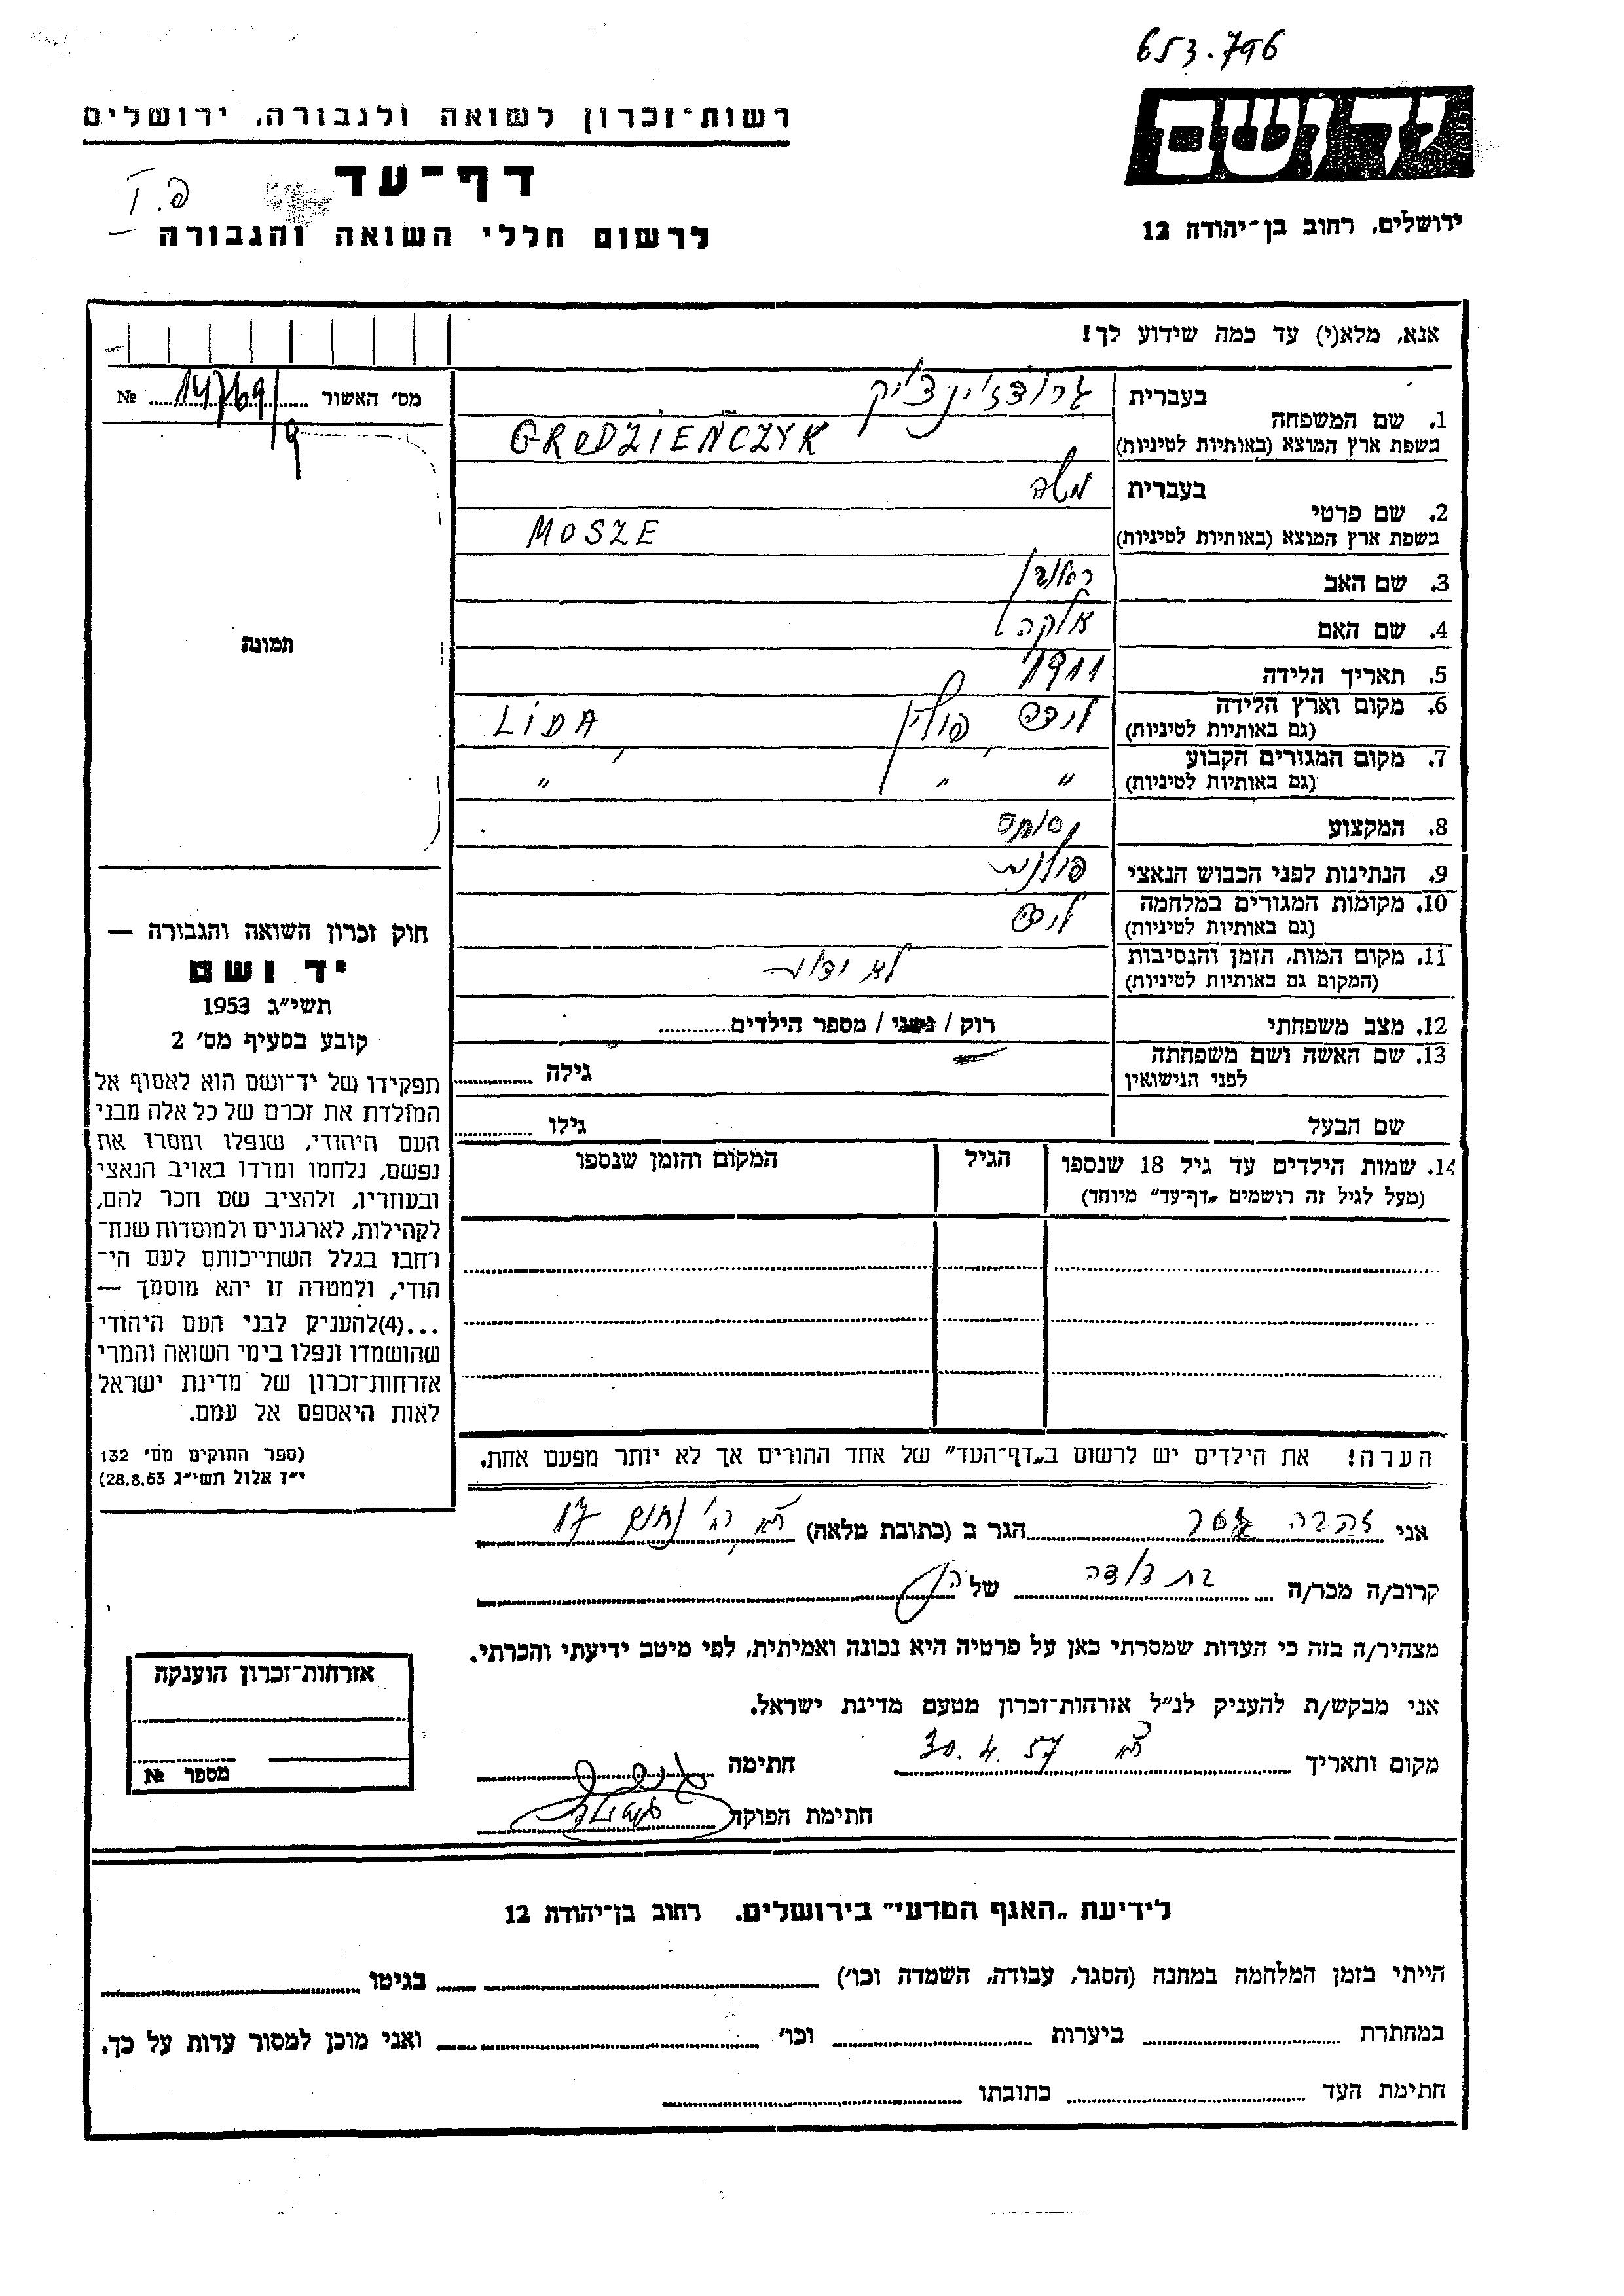 653.796
יד ושם
ירושלים, רחוב בן־יהודה 12
רשות־זכרון לשואה ולגבורה, ירושלים
דף־עד
לרשום חללי השואה והגבורה
אנא, מלא(י) עד כמה שידוע לך!
מס׳ האשור 14/69 №
9
בעברית גרודזינצ׳יק
1. שם המשפחה
בשפת ארץ המוצא (באותיות לטיניות) GRODZIEŃCZYK
בעברית משה
2. שם פרטי
בשפת ארץ המוצא (באותיות לטיניות) MOSZE
3. שם האב ראובן
4. שם האם אלקה
5. תאריך הלידה 1911
6. מקום וארץ הלידה לידה, פולין LIDA,
(גם באותיות לטיניות)
7. מקום המגורים הקבוע " " "
(גם באותיות לטיניות)
8. המקצוע
9. הנתינות לפני הכבוש הנאצי פולנית
10. מקומות המגורים במלחמה לידה
(גם באותיות לטיניות)
11. מקום המות, הזמן והנסיבות לא ידוע
(המקום גם באותיות לטיניות)
12. מצב משפחתי רוק / נשוי / מספר הילדים
13. שם האשה ושם משפחתה גילה
לפני הנישואין
שם הבעל גילו
14. שמות הילדים עד גיל 18 שנספו הגיל המקום והזמן שנספו
(מעל לגיל זה רושמים „דף־עד" מיוחד)
הערה! את הילדים יש לרשום ב„דף־העד" של אחד ההורים אך לא יותר מפעם אחת.
תמונה
חוק זכרון השואה והגבורה —
יד ושם
תשי״ג 1953
קובע בסעיף מס׳ 2
תפקידו של יד־ושם הוא לאסוף אל
המולדת את זכרם של כל אלה מבני
העם היהודי, שנפלו ומסרו את
נפשם, נלחמו ומרדו באויב הנאצי
ובעוזריו, ולהציב שם וזכר להם,
לקהילות, לארגונים ולמוסדות שנח־
רבו בגלל השתייכותם לעם הי־
הודי, ולמטרה זו יהא מוסמך —
...(4)להעניק לבני העם היהודי
שהושמדו ונפלו בימי השואה והמרי
אזרחות־זכרון של מדינת ישראל
לאות היאספם אל עמם.
(ספר החוקים מס׳ 132
י״ז אלול תשי״ג 28.8.53)
אני זהבה הגר ב (כתובת מלאה) ת״א רח׳ נחום 17
קרוב/ה מכר/ה בת דודה של
מצהיר/ה בזה כי העדות שמסרתי כאן על פרטיה היא נכונה ואמיתית, לפי מיטב ידיעתי והכרתי.
אני מבקש/ת להעניק לנ״ל אזרחות־זכרון מטעם מדינת ישראל.
מקום ותאריך ת״א 30.4.57 חתימה
חתימת הפוקד
אזרחות־זכרון הוענקה
מספר №
לידיעת „האגף המדעי" בירושלים, רחוב בן־יהודה 12
הייתי בזמן המלחמה במחנה (הסגר, עבודה, השמדה וכו׳) בגיטו
במחתרת ביערות וכו׳ ואני מוכן למסור עדות על כך.
חתימת העד כתובתו